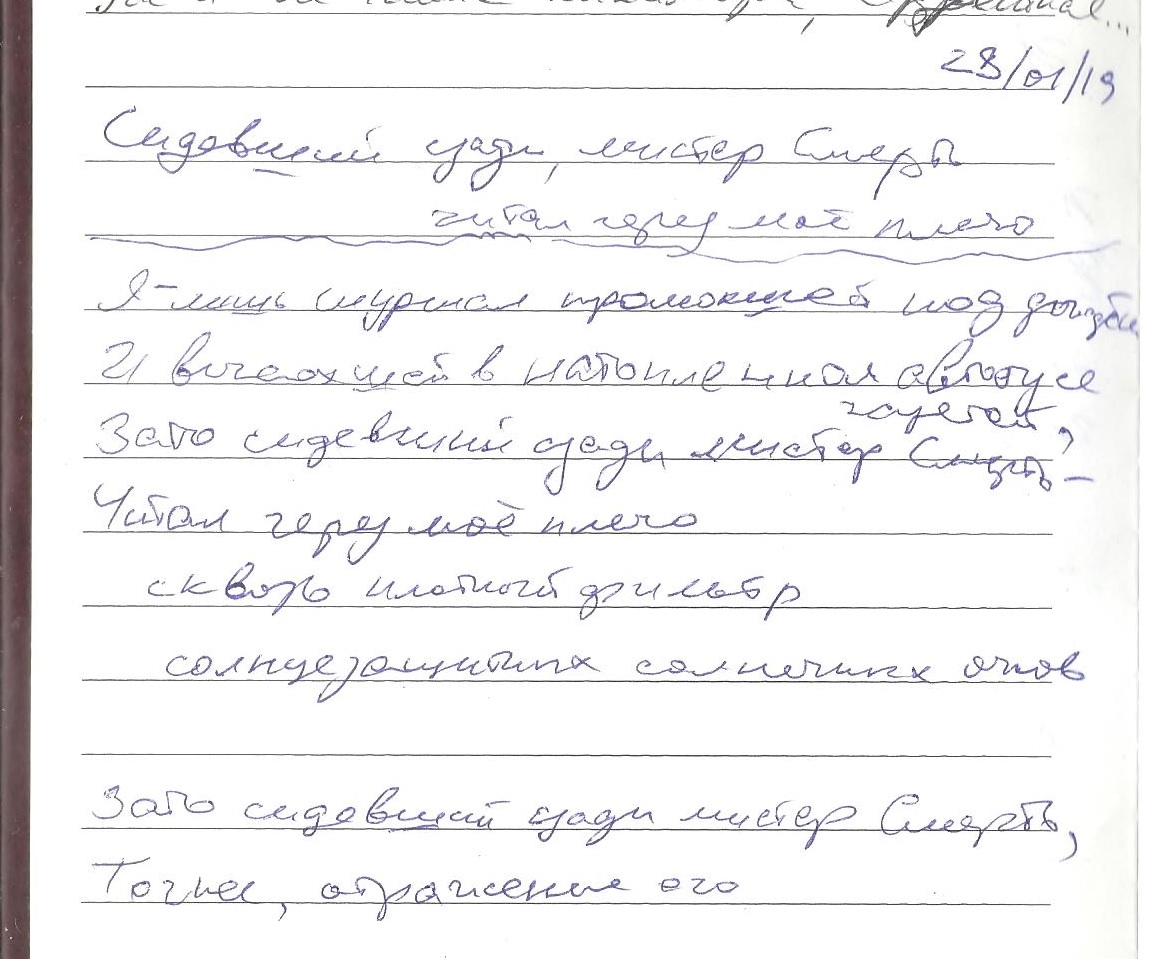 28/01/19
Сидевший сзади, мистер Смерть
читал через моё плечо
Я - лишь шуршал промокшей под дождём
И высохшей в натопленном автобусе
газетой,
Зато сидевший сзади мистер Смерть –
Читал через моё плечо
сквозь плотный фильтр
солнцезащитных солнечных очков
Зато сидевший сзади мистер Смерть,
Точнее, отражение его